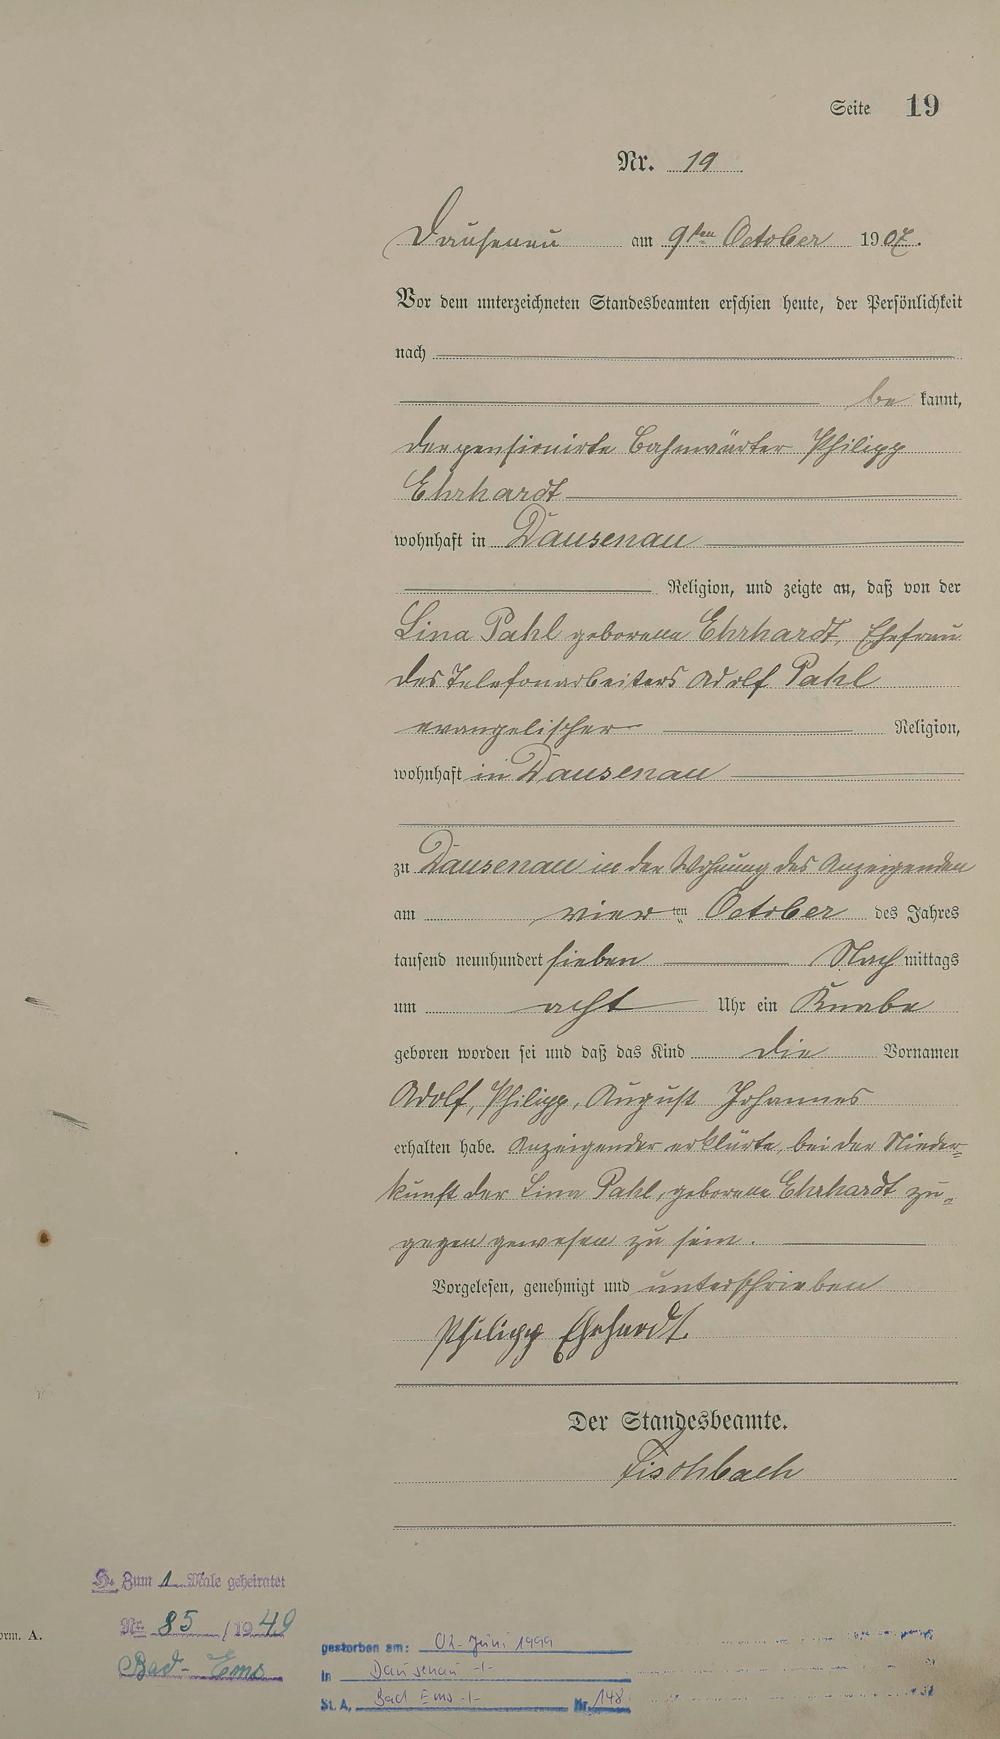 Seite 19
Nr. 19
Dausenau am 9ten October 1907.
Vor dem unterzeichneten Standesbeamten erschien heute, der Persönlichkeit
nach
be kannt,
der pensionirte Bahnwärter Philipp
Ehrhardt
wohnhaft in Dausenau
Religion, und zeigte an, daß von der
Lina Pahl geborene Ehrhardt, Ehefrau
des Telefonarbeiters Adolf Pahl
evangelischer Religion,
wohnhaft in Dausenau
zu Dausenau in der Wohnung des Anzeigenden
am vier ten October des Jahres
tausend neunhundert sieben Nach mittags
um acht Uhr ein Knabe
geboren worden sei und daß das Kind die Vornamen
Adolf, Philipp, August Johannes
erhalten habe. Anzeigender erklärte, bei der Nieder=
kunft der Lina Pahl, geborene Ehrhardt zu=
gegen gewesen zu sein.
Vorgelesen, genehmigt und unterschrieben
Philipp Ehrhardt
Der Standesbeamte.
Fischbach
Zum 1 Male geheiratet
Nr. 85 /1949
Bad-Ems
orm. A.
gestorben am: 02. Juni 1999
in Dausenau -/-
St. A. Bad Ems -/- Nr. 148